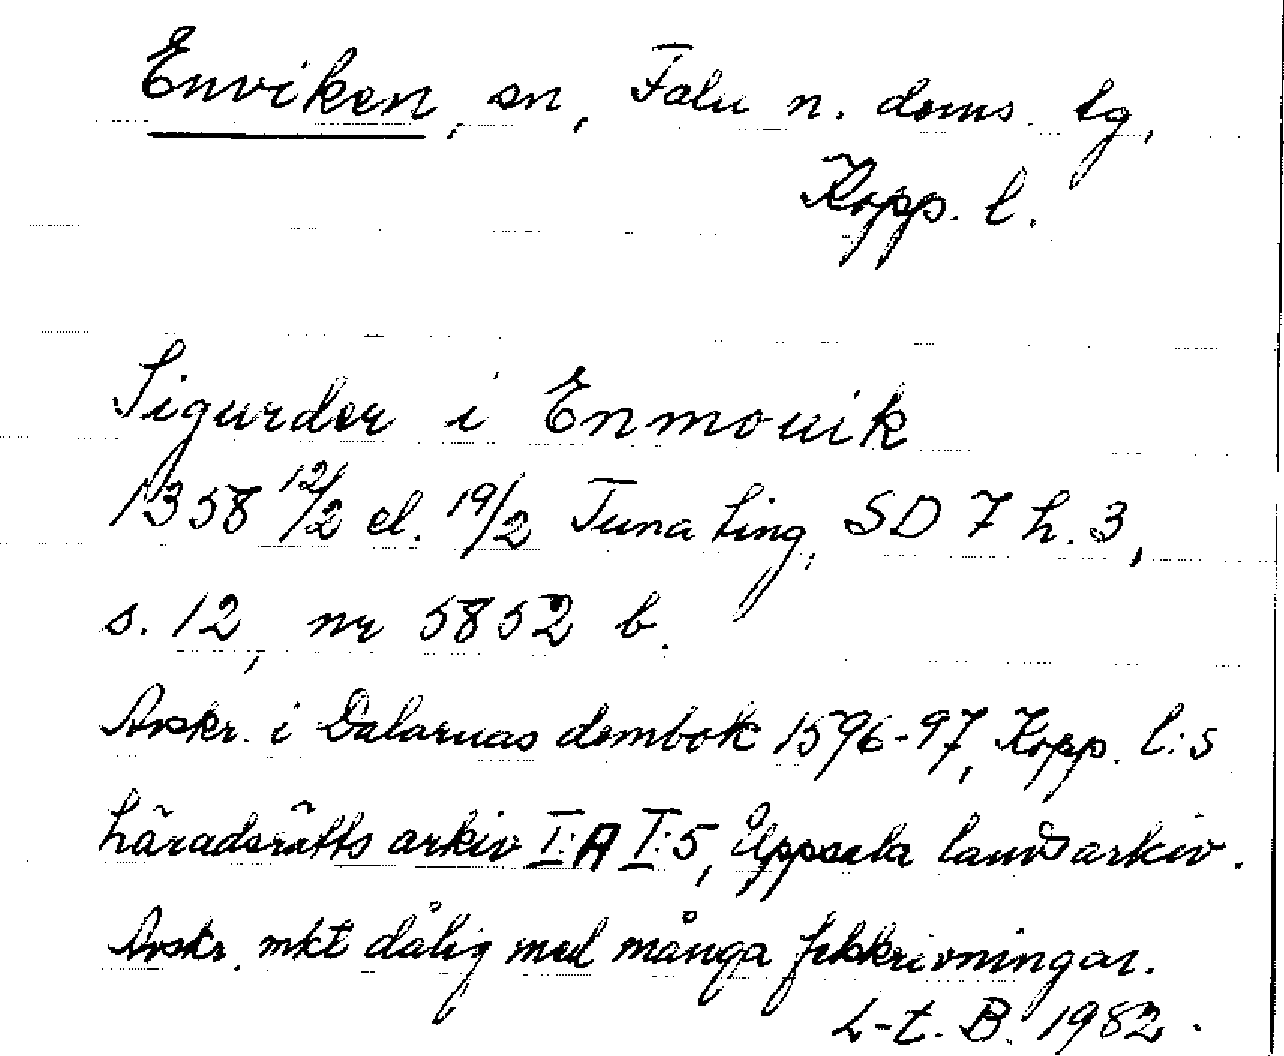 Enviken, sn, Falu n. doms. tg,
Kopp. l.
Sigurder i Enmouik
1358 12/2 el. 19/2 Tuna ting, SD 7 h. 3,
s. 12, nr 5852 b.
Avskr. i Dalarnas dombok 1596-97, Kopp. l:s
häradsrätts arkiv I:A I:5, Uppsala landsarkiv.
Avskr. mkt dålig med många felskrivningar.
L-t. B. 1982.